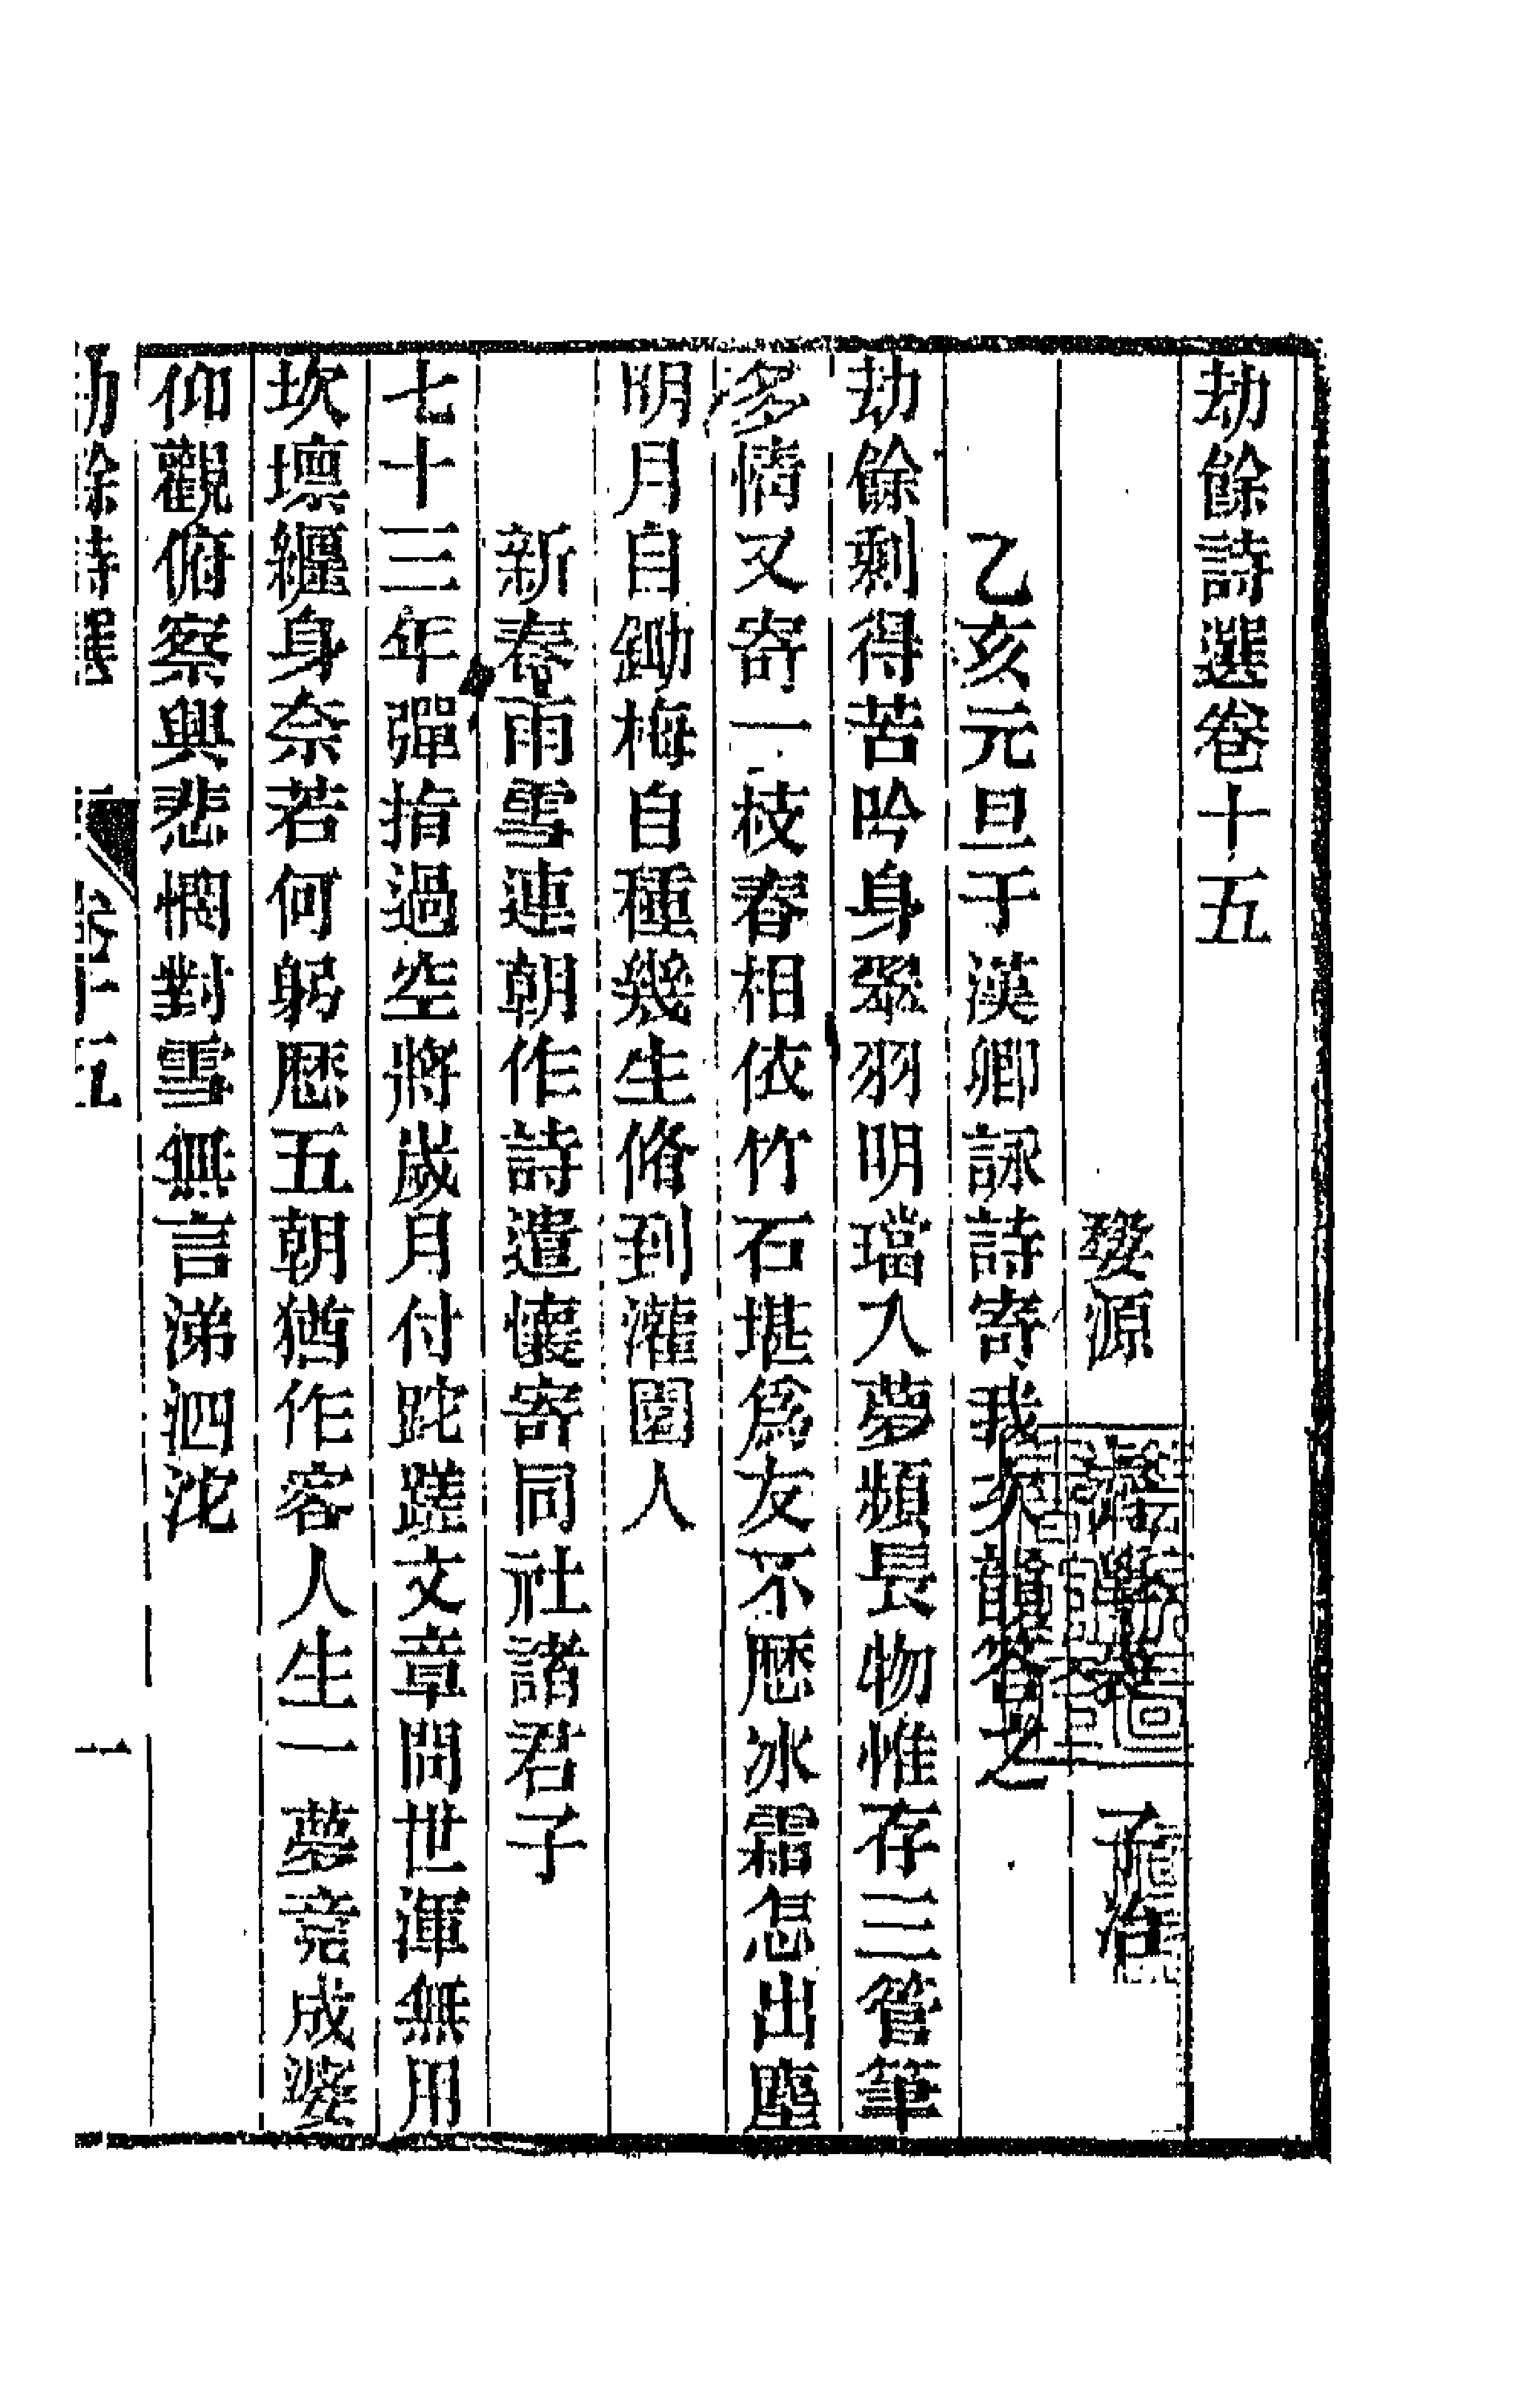 劫餘詩選卷十五
婺源 齊學裘 子治
乙亥元旦于漢卿詠詩寄我次韻答之
劫餘剩得苦吟身翠羽明璫入夢頻長物惟存三管筆
多情又寄一枝春相依竹石堪爲友不歷冰霜怎出塵
明月自鋤梅自種幾生脩到灌園人
新春雨雪連朝作詩遣懷寄同社諸君子
七十三年彈指過空將歲月付跎蹉文章問世渾無用
坎壈纏身奈若何躬歷五朝猶作客人生一夢竟成婆
仰觀俯察興悲憫對雪無言涕泗沱
劫餘詩選 卷十五 一